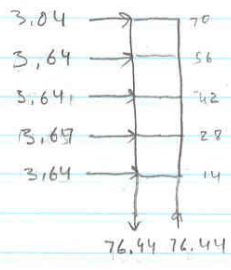 3,04 70
3,64 56
3,64 42
3,67 28
3,64 14
76.44 76.44